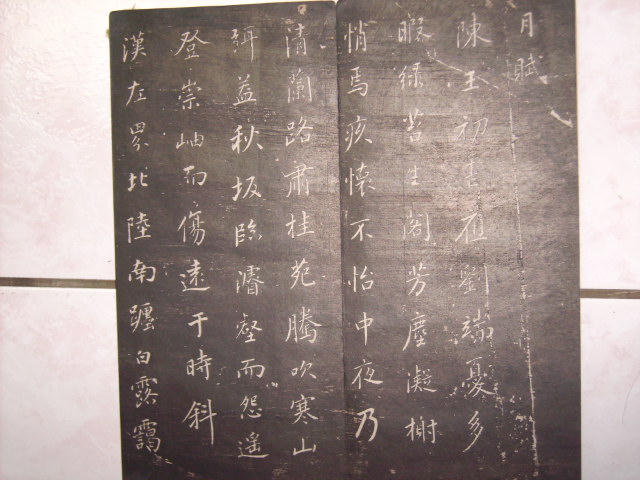 月賦
陳王初喪應劉端憂多
暇綠苔生閣芳塵凝榭
悄焉疚懷不怡中夜乃
清蘭路肅桂苑騰吹寒山
弭蓋秋坂臨濬壑而怨遙
登崇岫而傷遠于時斜
漢左界北陸南躔白露靄